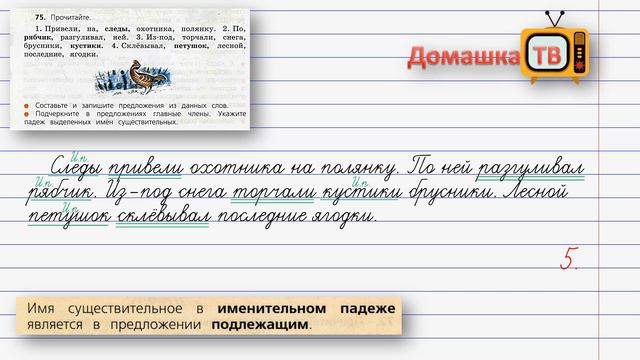 75. Прочитайте.
1. Привели, на, следы, охотника, полянку. 2. По,
рябчик, разгуливал, ней. 3. Из-под, торчали, снега,
брусники, кустики. 4. Склёвывал, петушок, лесной,
последние, ягодки.
Составьте и запишите предложения из данных слов.
Подчеркните в предложениях главные члены. Укажите
падеж выделенных имён существительных.
Домашка
ТВ
И.п.
Следы привели охотника на полянку. По ней разгуливал
И.п. И.п.
рябчик. Из-под снега торчали кустики брусники. Лесной
И.п.
петушок склёвывал последние ягодки.
5.
Имя существительное в именительном падеже
является в предложении подлежащим.